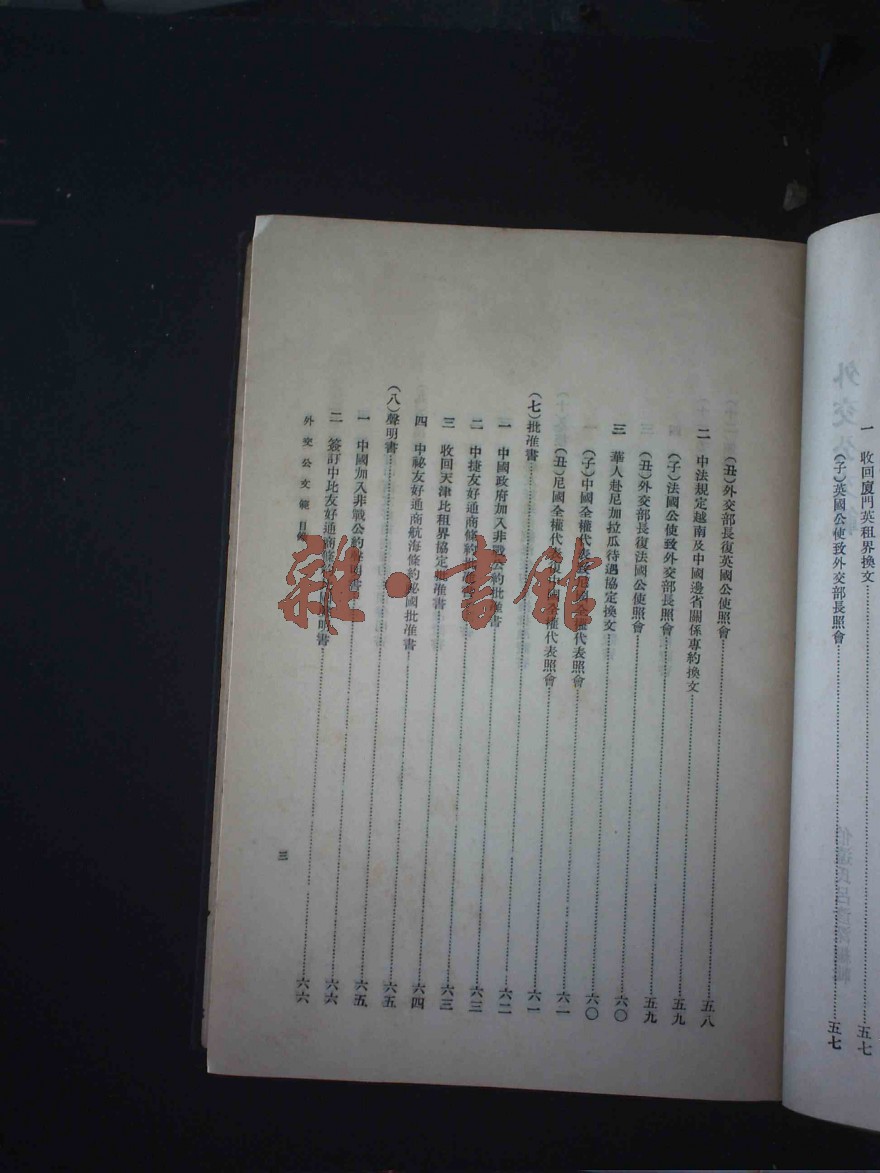 一 收回廈門英租界換文……五七
(子)英國公使致外交部長照會……五七
(丑)外交部長復英國公使照會……五八
二 中法規定越南及中國邊省關係專約換文……五九
(子)法國公使致外交部長照會……五九
(丑)外交部長復法國公使照會……六〇
三 華人赴尼加拉瓜待遇協定換文……六〇
(子)中國全權代表致尼國全權代表照會……六一
(丑)尼國全權代表復中國全權代表照會……六一
(七)批准書……六二
一 中國政府加入非戰公約批准書……六三
二 中捷友好通商條約批准書……六三
三 收回天津比租界協定批准書……六四
四 中祕友好通商航海條約祕國批准書……六五
(八)聲明書……六五
一 中國加入非戰公約聲明書……六六
二 簽訂中比友好通商條約聲明書……六六
外交公文範 目
三
雜·書館